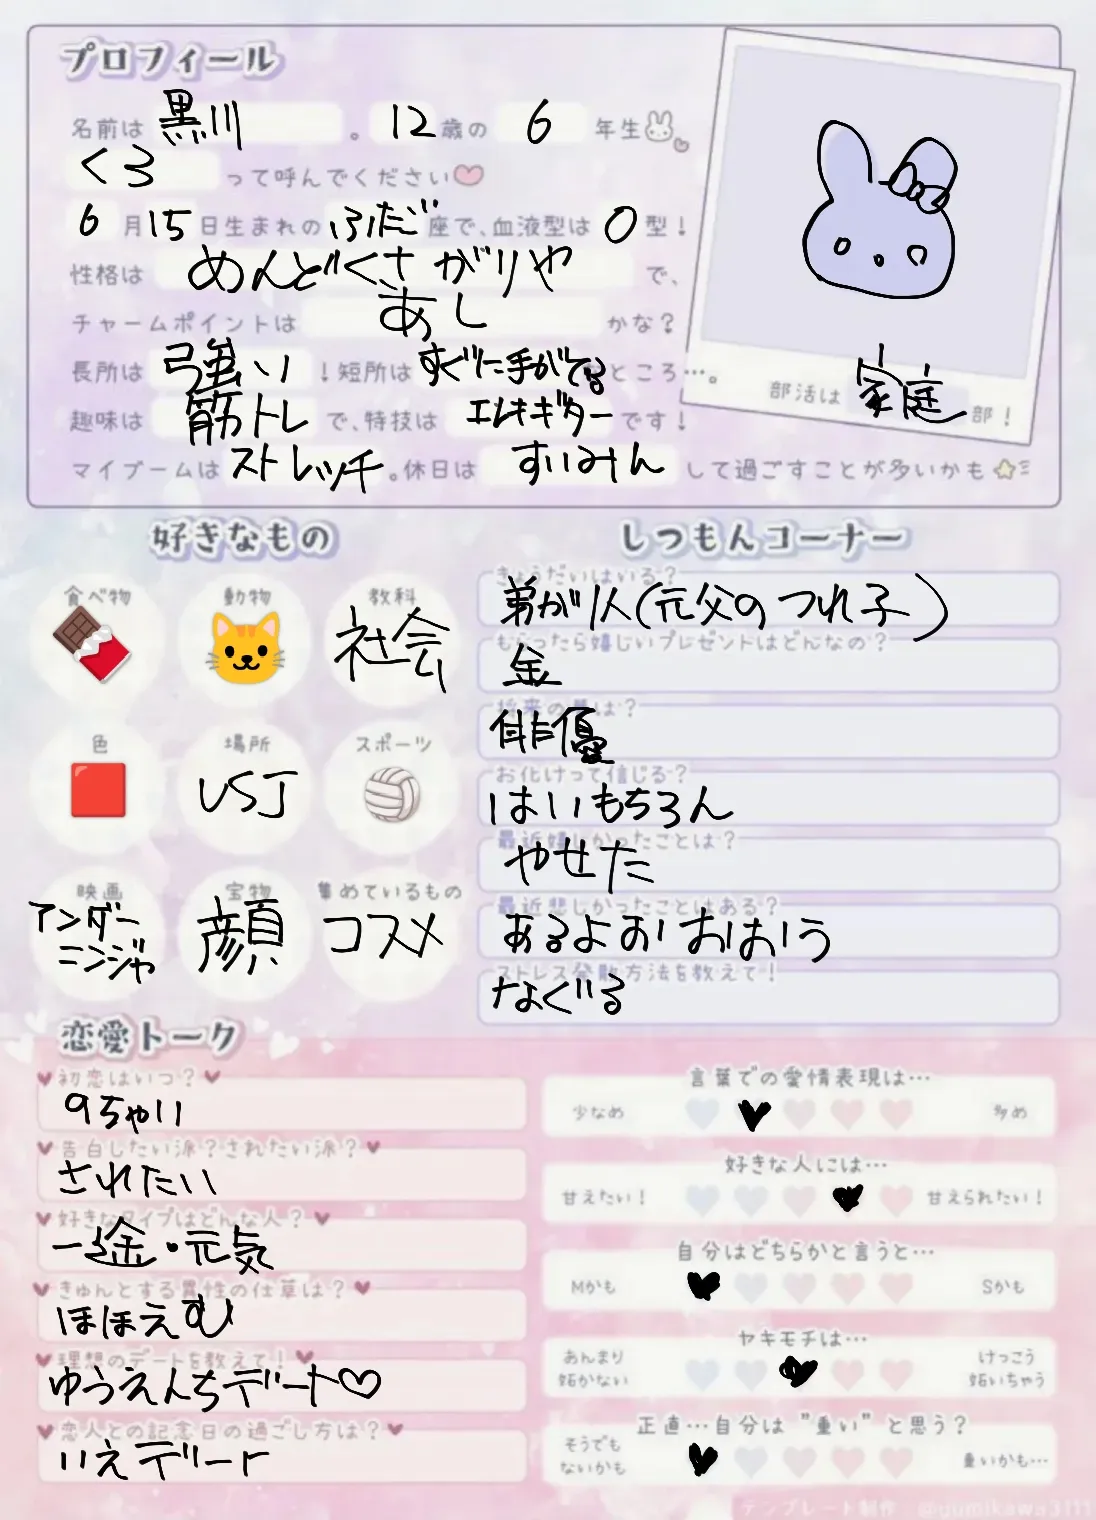 プロフィール
名前は 黒川 。 12 歳の 6 年生
くろ って呼んでください
6 月 15 日生まれの ふだご 座で、血液型は O 型！
性格は めんどくさがりや で、
チャームポイントは あし かな？
長所は 強い ！短所は すぐに手がでる ところ…。
部活は 家庭 部！
趣味は 筋トレ で、特技は エレキギター です！
マイブームは ストレッチ 。休日は すいみん して過ごすことが多いかも
好きなもの
食べ物
動物
教科
社会
色
場所
USJ
スポーツ
映画
アンダー
ニンジャ
宝物
顔
集めているもの
コスメ
しつもんコーナー
きょうだいはいる？
弟が1人(元父のつれ子)
もらったら嬉しいプレゼントはどんなの？
金
将来の夢は？
俳優
お化けって信じる？
はいもちろん
最近嬉しかったことは？
やせた
最近悲しかったことはある？
あるよお おおいう
ストレス発散方法を教えて！
なぐる
恋愛トーク
初恋はいつ？
9ちゃい
告白したい派？されたい派？
されたい
好きなタイプはどんな人？
一途・元気
きゅんとする異性の仕草は？
ほほえむ
理想のデートを教えて！
ゆうえんちデート♡
恋人との記念日の過ごし方は？
いえデート
言葉での愛情表現は…
少なめ
多め
好きな人には…
甘えたい！
甘えられたい！
自分はどちらかと言うと…
Mかも
Sかも
ヤキモチは…
あんまり
妬かない
けっこう
妬いちゃう
正直…自分は"重い"と思う？
そうでも
ないかも
重いかも…
テンプレート制作